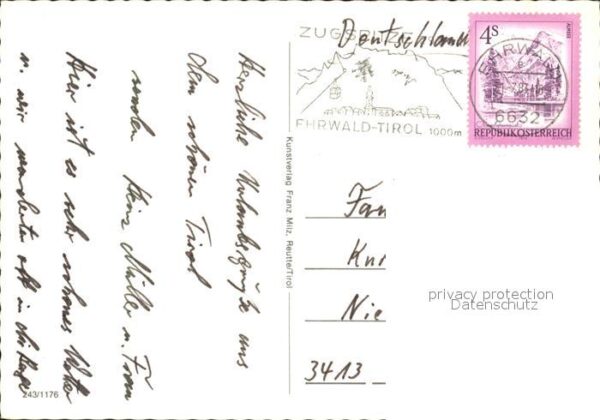 Herzliche Urlaubsgrüße aus
dem schönen Tirol
senden Heinz Müller u. Frau
Hier ist es sehr schönes Wetter
u. wir wandern oft in die Berge
243/1176
Kunstverlag Franz Milz, Reutte/Tirol
ZUGSPITZE
Deutschland
EHRWALD-TIROL 1000m
4S
ALMSEE
EHRWALD
6632
REPUBLIK ÖSTERREICH
Fam
Kur
Nie
3413
privacy protection
Datenschutz